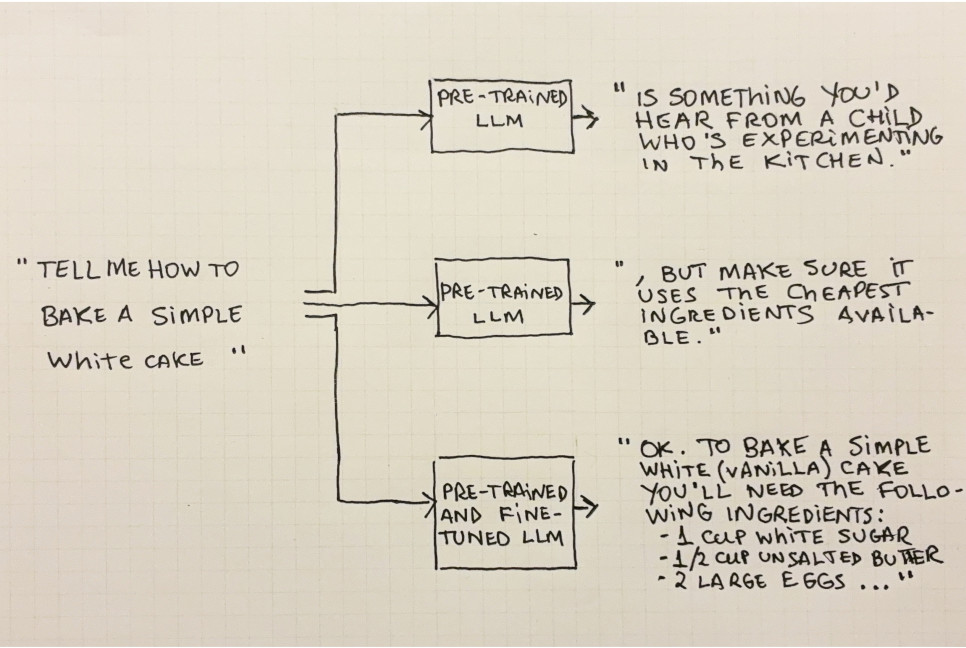 "TELL ME HOW TO
BAKE A SIMPLE
White CAKE "
PRE-TRAINED
LLM
" IS SOMEThING YOU'D
HEAR FROM A CHILD
WHO'S EXPERIMENTING
IN ThE KITCHEN."
PRE-TRAINED
LLM
", BUT MAKE SURE IT
USES ThE ChEAPEST
INGREDIENTS AVAILA-
BLE."
PRE-TRAINED
AND FINE-
TUNED LLM
" OK. TO BAKE A SIMPLE
WHITE (VANILLA) CAKE
YOU'LL NEED ThE FOLLO-
WING INGREDIENTS:
- 1 CUP WHITE SUGAR
- 1/2 CUP UNSALTED BUTTER
- 2 LARGE EGGS ... "